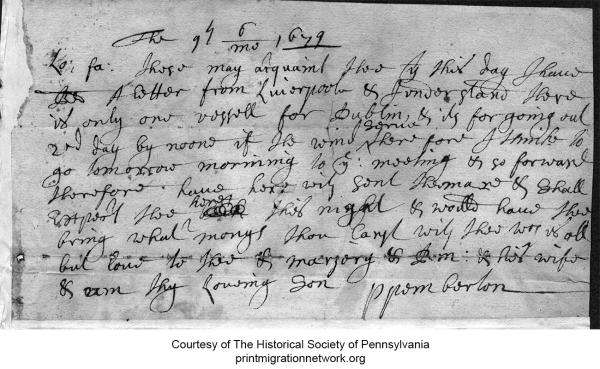 The 9th 6/mo 1679
Lo: fa: these may acquaint thee yt this day I have
A letter from Liverpoole & I understand there
is only one vessell for Dublin & its for going out
2nd day by noone if the wind serve therefore I think to
go tomorrow morning to ye: meeting & so forward
therefore have here with sent the mare & shall
Expect thee here this night & would have thee
bring what monys thou canst with thee wch is all
but Love to thee & margery & & his wife
& am thy Loveing Son ppemberton
Courtesy of The Historical Society of Pennsylvania
printmigrationnetwork.org